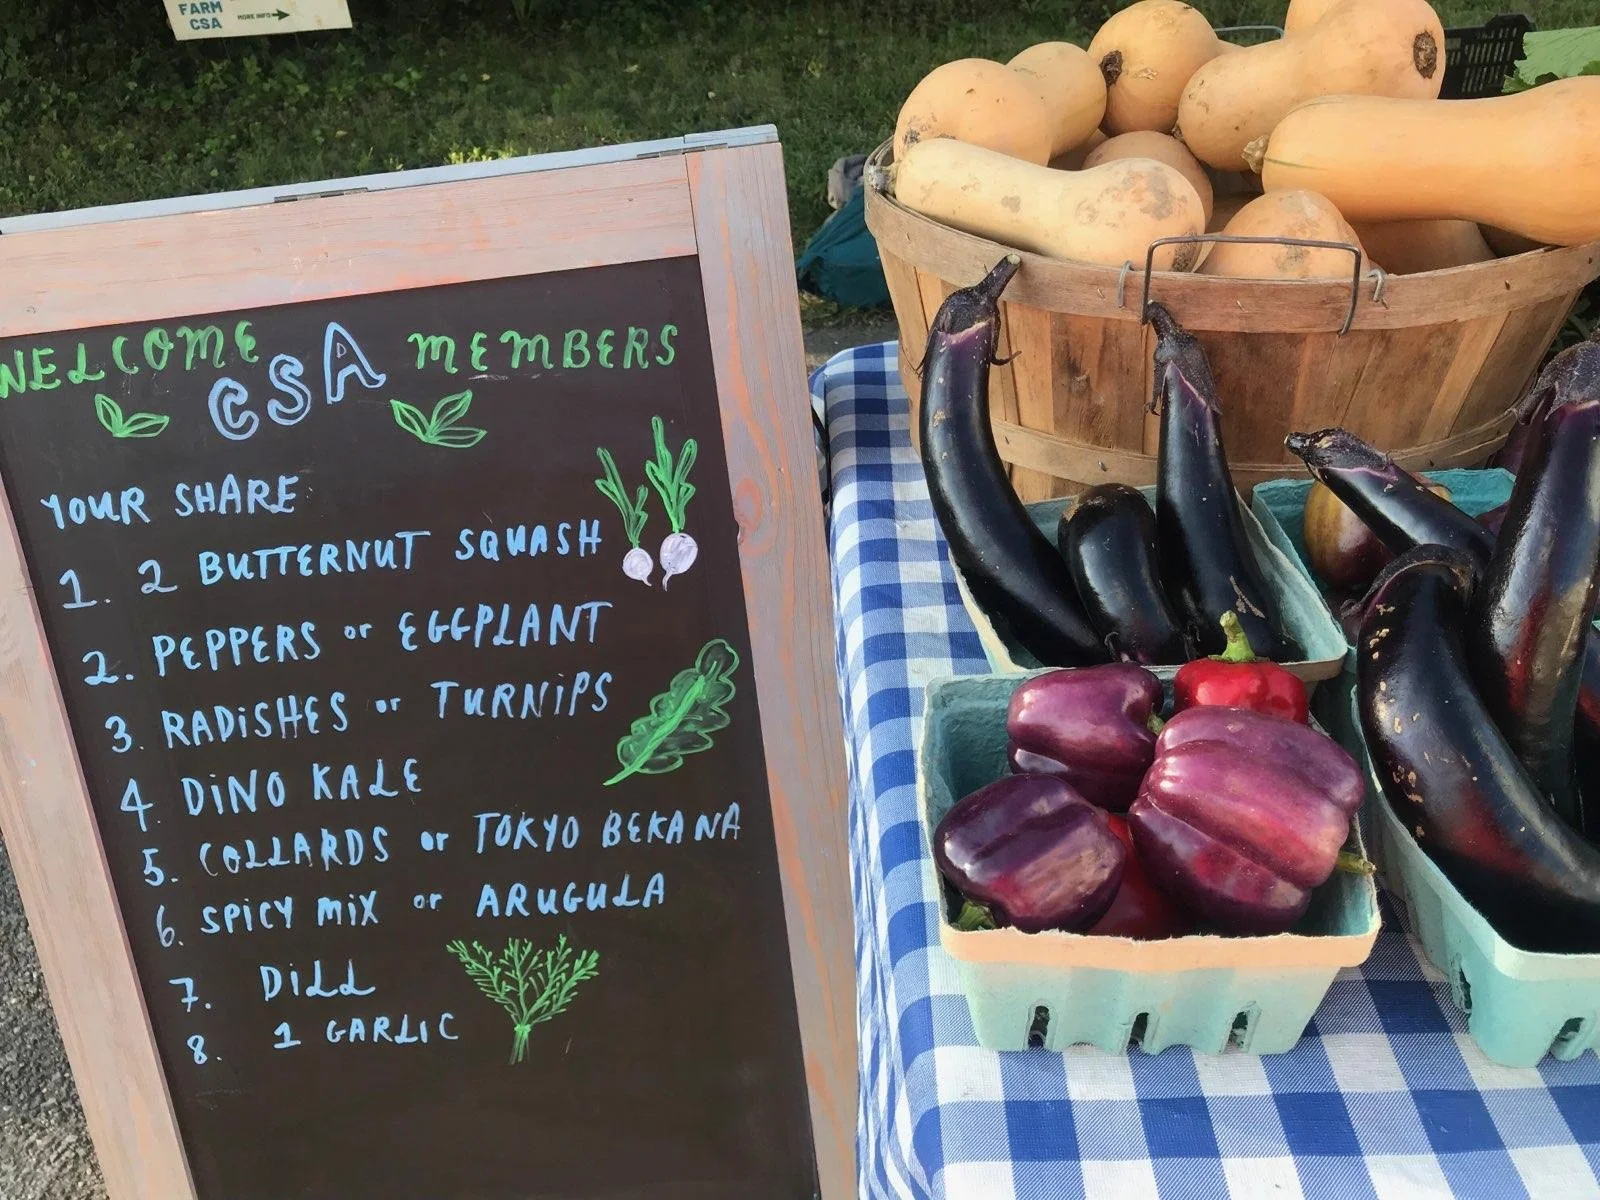 FARM
CSA
MORE INFO
WELCOME CSA MEMBERS
YOUR SHARE
1. 2 BUTTERNUT SQUASH
2. PEPPERS or EGGPLANT
3. RADISHES or TURNIPS
4. DINO KALE
5. COLLARDS or TOKYO BEKANA
6. SPICY MIX or ARUGULA
7. DILL
8. 1 GARLIC